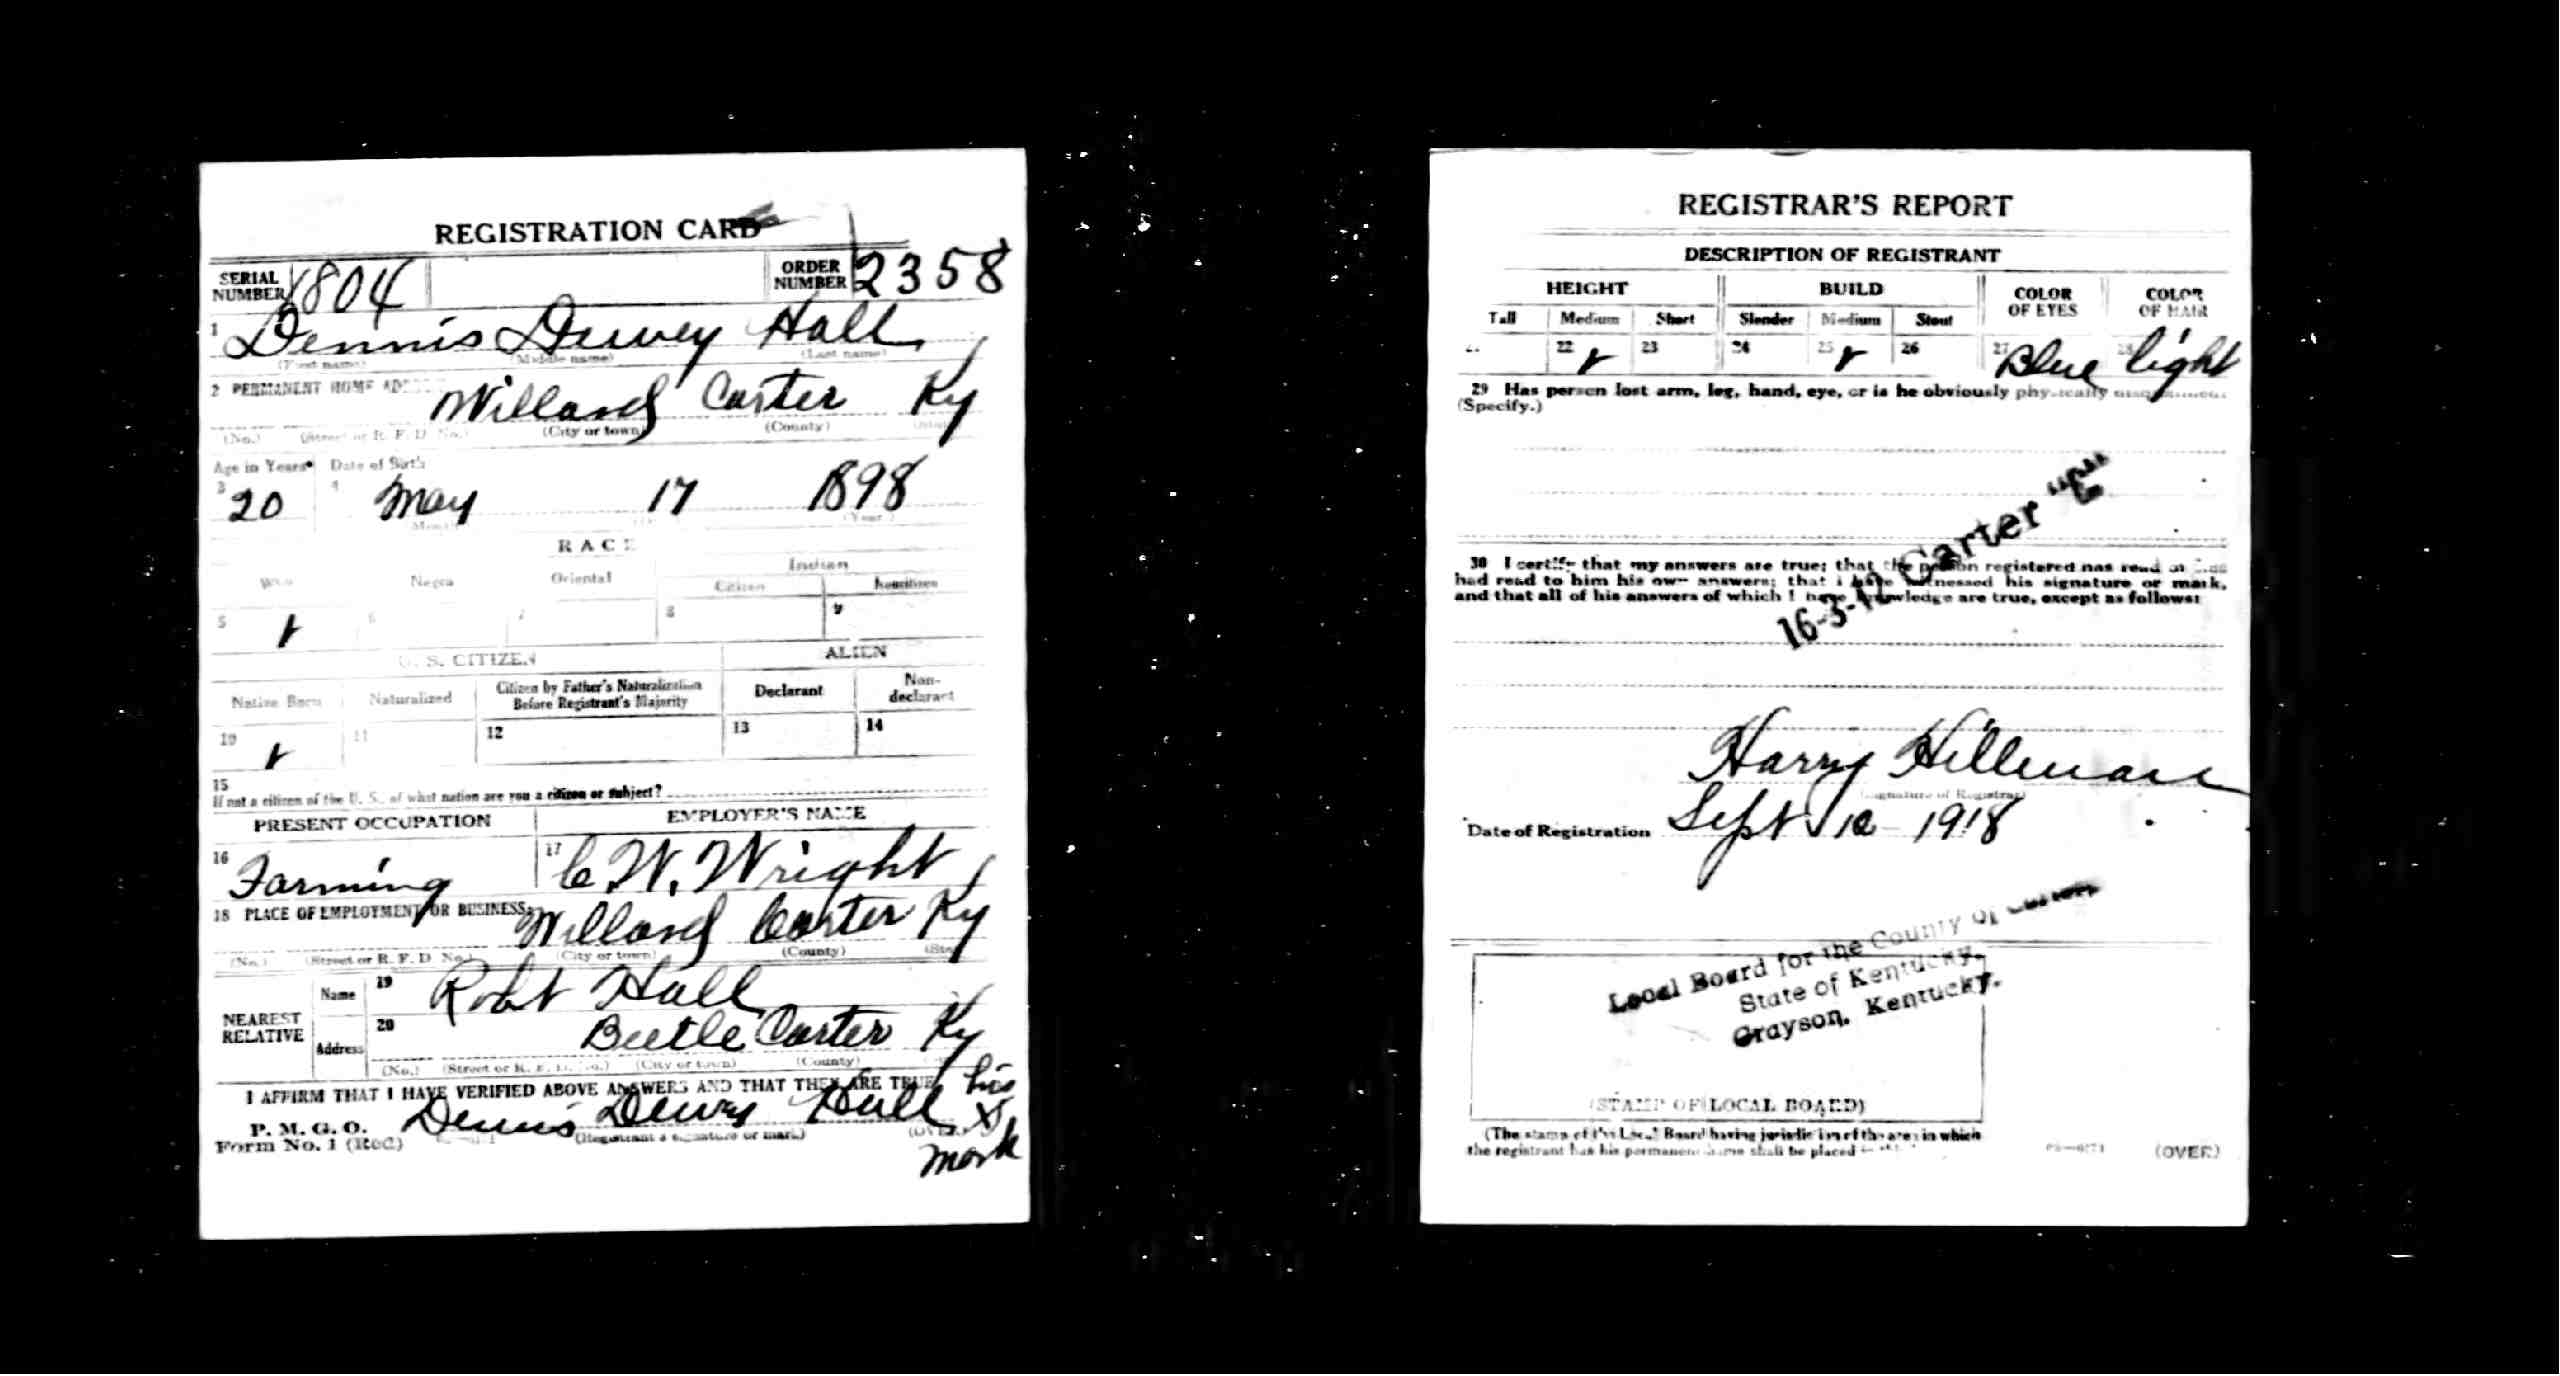 REGISTRATION CARD
SERIAL NUMBER 1804 ORDER NUMBER 2358
1 Dennis Dewey Hall
(First name) (Middle name) (Last name)
2 PERMANENT HOME Willard Carter Ky
(No.) (Street or R. F. D. No.) (City or town) (County) (State)
Age in Years Date of Birth
3 20 4 May 17 1898
(Year)
RACE
Indian
Negro Oriental Citizen Noncitizen
5 6 7 8 9
U. S. CITIZEN ALIEN
Native Born Naturalized Citizen by Father's Naturalization Before Registrant's Majority Declarant Non-declarant
10 11 12 13 14
15
If not a citizen of the U. S., of what nation are you a citizen or subject?
PRESENT OCCUPATION EMPLOYER'S NAME
16 Farming 17 C W. Wright
18 PLACE OF EMPLOYMENT OR BUSINESS: Willard Carter Ky
(No.) (Street or R. F. D. No.) (City or town) (County) (State)
NEAREST RELATIVE
Name 19 Robt Hall
Address 20 Beetle Carter Ky
(No.) (Street or R. F. D. No.) (City or town) (County)
I AFFIRM THAT I HAVE VERIFIED ABOVE ANSWERS AND THAT THEY ARE TRUE
P. M. G. O.
Form No. 1 (Red) Dennis Dewey Hall his X mark
(Registrant's signature or mark) (OVER)
REGISTRAR'S REPORT
DESCRIPTION OF REGISTRANT
HEIGHT BUILD COLOR OF EYES COLOR OF HAIR
Tall Medium Short Slender Medium Stout
22 23 24 25 26 27 Blue light
29 Has person lost arm, leg, hand, eye, or is he obviously physically
(Specify.)
16-3-12 Carter
30 I certify that my answers are true; that the person registered has read or has
had read to him his own answers; that I have witnessed his signature or mark,
and that all of his answers of which I have knowledge are true, except as follows:
Harry Hillman
(Signature of Registrar)
Date of Registration Sept 12 1918
Local Board for the County of Carter
State of Kentucky.
Grayson, Kentucky.
(STAMP OF LOCAL BOARD)
(The stamp of the Local Board having jurisdiction of the area in which
the registrant has his permanent home shall be placed
(OVER)